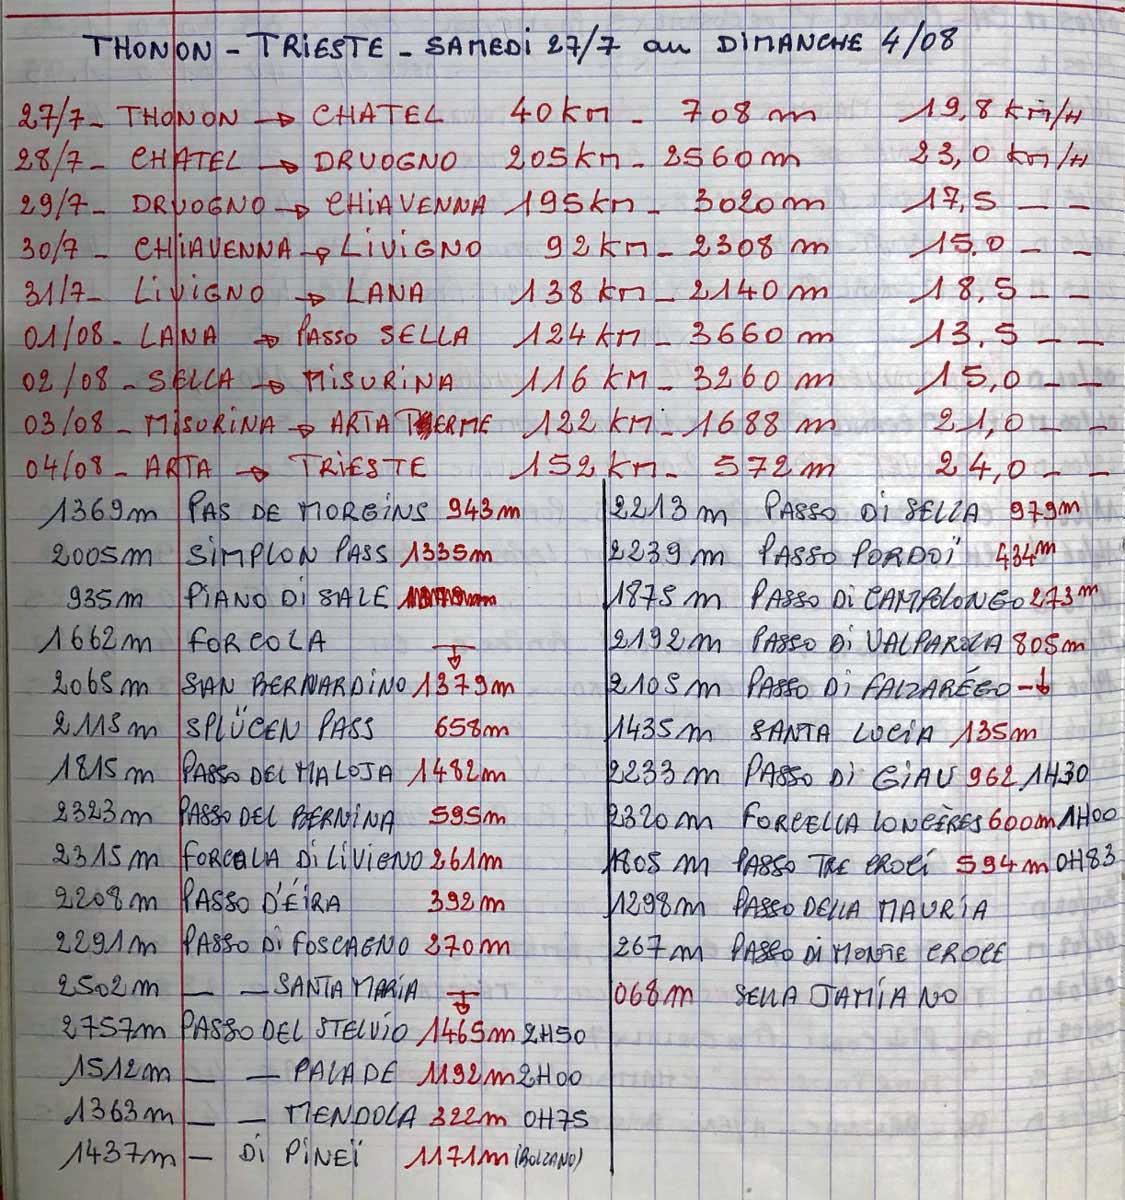 THONON - TRIESTE - SAMEDI 27/7 au DIMANCHE 4/08
27/7- THONON → CHATEL 40 km - 708 m 19,8 km/H
28/7- CHATEL → DRUOGNO 205 km - 2560 m 23,0 km/H
29/7- DRUOGNO → CHIAVENNA 195 km - 3020 m 17,5 - -
30/7- CHIAVENNA → LIVIGNO 92 km - 2308 m 15,0 - -
31/7- LIVIGNO → LANA 138 km - 2140 m 18,5 - -
01/08- LANA → PASSO SELLA 124 km - 3660 m 13,5 - -
02/08- SELLA → MISURINA 116 KM - 3260 m 15,0 - -
03/08- MISURINA → ARTA TERME 122 KM - 1688 m 21,0 - -
04/08- ARTA → TRIESTE 152 km - 572 m 24,0 - -
1369m PAS DE MORGINS 943m
2005m SIMPLON PASS 1335m
935m PIANO DI SALE
1662m FORCOLA ↓
2065m SAN BERNARDINO 1379m
2115m SPLÜGEN PASS 658m
1815m PASSO DEL MALOJA 1482m
2323m PASSO DEL BERNINA 595m
2315m FORCOLA DI LIVIGNO 261m
2208m PASSO D'ÉIRA 392m
2291m PASSO DI FOSCAGNO 270m
2502m - - SANTA MARIA ↓
2757m PASSO DEL STELVIO 1465m 2H50
1512m - - PALADE 1192m 2H00
1363m - - MENDOLA 322m 0H75
1437m - DI PINEÏ 1171m (BOLZANO)
2213 m PASSO DI SELLA 979m
2239 m PASSO PORDOÏ 434m
1875 m PASSO DI CAMPOLONGO 273m
2192m PASSO DI VALPAROLA 805m
2105m PASSO DI FALZARÉGO -↓
1435m SANTA LUCIA 135m
2233 m PASSO DI GIAU 962 1H30
2320m FORCELLA LONGÈRES 600m 1H00
1805 m PASSO TRE CROCI 594m 0H83
1298m PASSO DELLA MAURIA
267m PASSO DI MONTE CROCE
068m SELLA JAMIANO